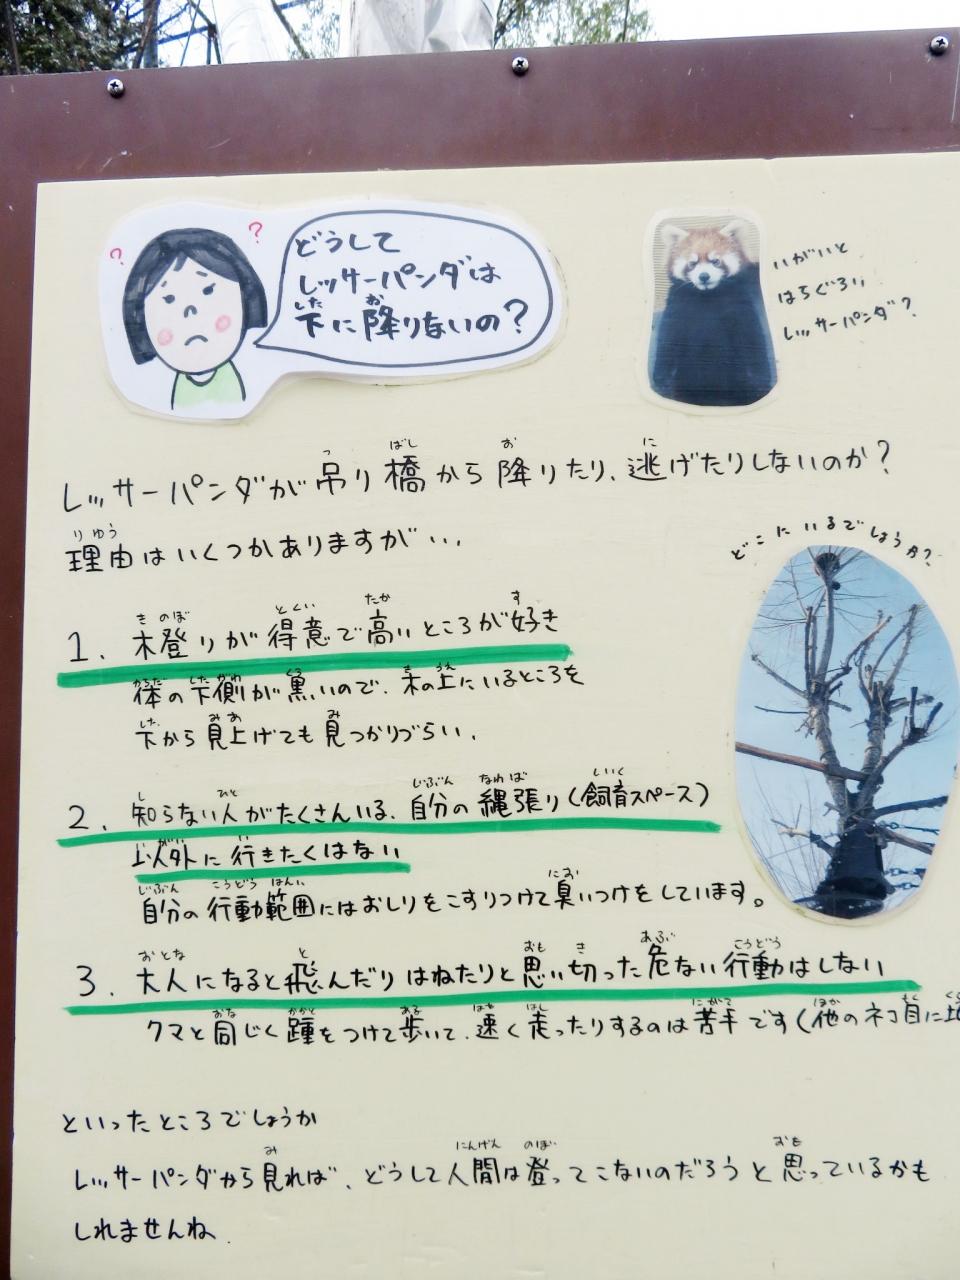 どうして
レッサーパンダは
下に降りないの?
いがいと
はらぐろい
レッサーパンダ?
レッサーパンダが吊り橋から降りたり、逃げたりしないのか?
理由はいくつかありますが...
どこにいるでしょうか?
1. 木登りが得意で高いところが好き
体の下側が黒いので、木の上にいるところを
下から見上げても見つかりづらい.
2. 知らない人がたくさんいる、自分の縄張り(飼育スペース)
以外に行きたくはない
自分の行動範囲にはおしりをこすりつけて臭いつけをしています。
3. 大人になると飛んだりはねたりと思い切った危ない行動はしない
クマと同じく踵をつけて歩いて、速く走ったりするのは苦手です(他のネコ目に
といったところでしょうか
レッサーパンダから見れば、どうして人間は登ってこないのだろうと思っているかも
しれませんね.